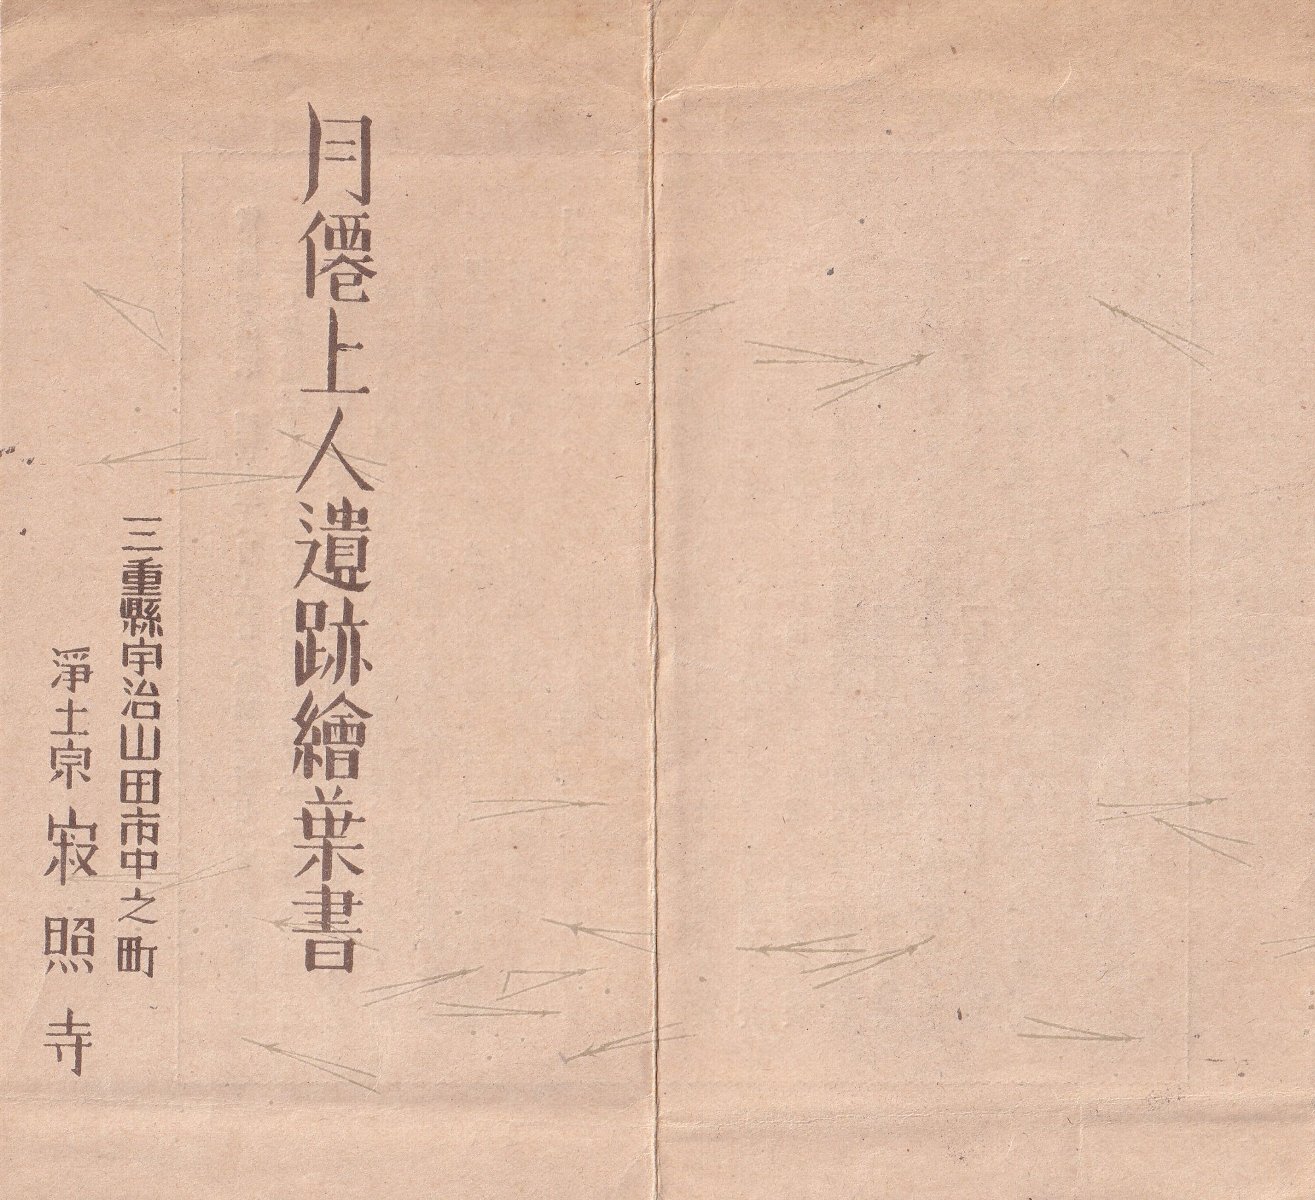 月僊上人遺跡繪葉書
三重縣宇治山田市中之町
淨土宗 寂照寺